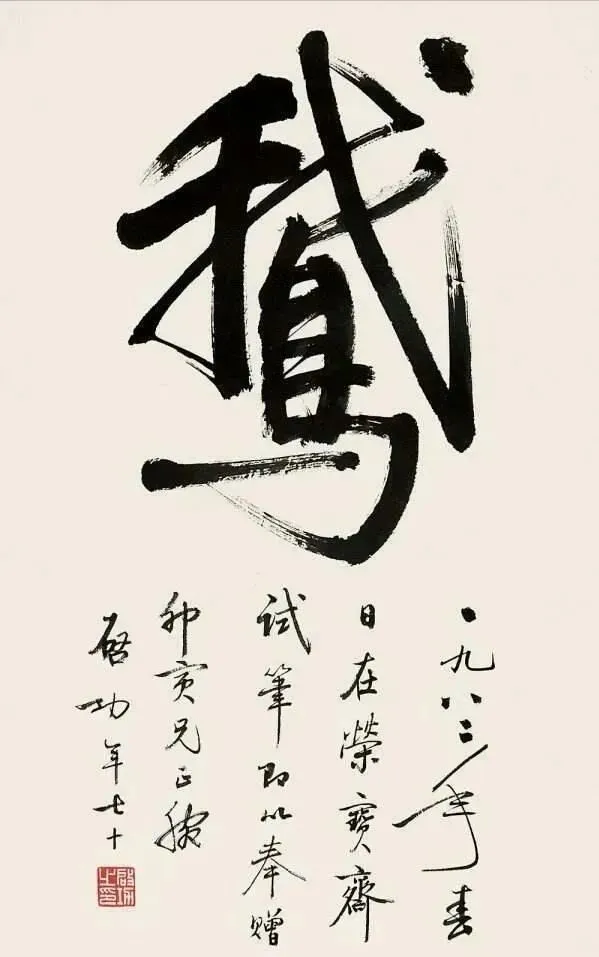 鵝
一九八二年春
日在榮寶齋
試筆即以奉贈
卯寅兄正腕
启功年七十
啓功之印